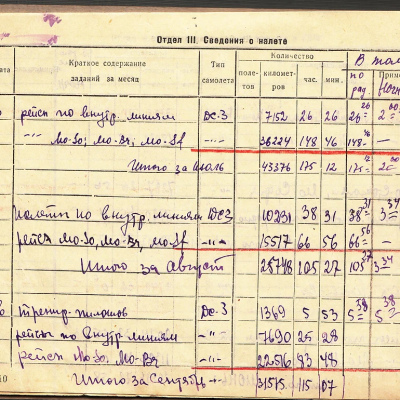 Отдел III. Сведения о налете
ата Краткое содержание заданий за месяц Тип самолета Количество полетов километров час. мин. В том Приме
рейсы по внутр. линиям Дс-3 7152 26 26 26 26 2 00
-"- Мо-Зо; Мо-Вз; Мо-Sf -"- 36224 148 46 148 46
Итого за Июль 43376 175 12 175 2
полеты по внутр. линиям ДС3 10231 38 31 38 31 3 34
рейсы Мо-Зо, Мо-Вз, Мо-Sf -"- 15517 66 56 66 56 —
Итого за Август 25748 105 27 105 27 3 34
тренир. пилотов Дс-3 1369 5 53 5 5 38
рейсы по внутр. линиям -"- 7690 25 28
рейсы Мо-Зо, Мо-Вз -"- 22516 83 48
Итого за Сентябрь 31575 115 07